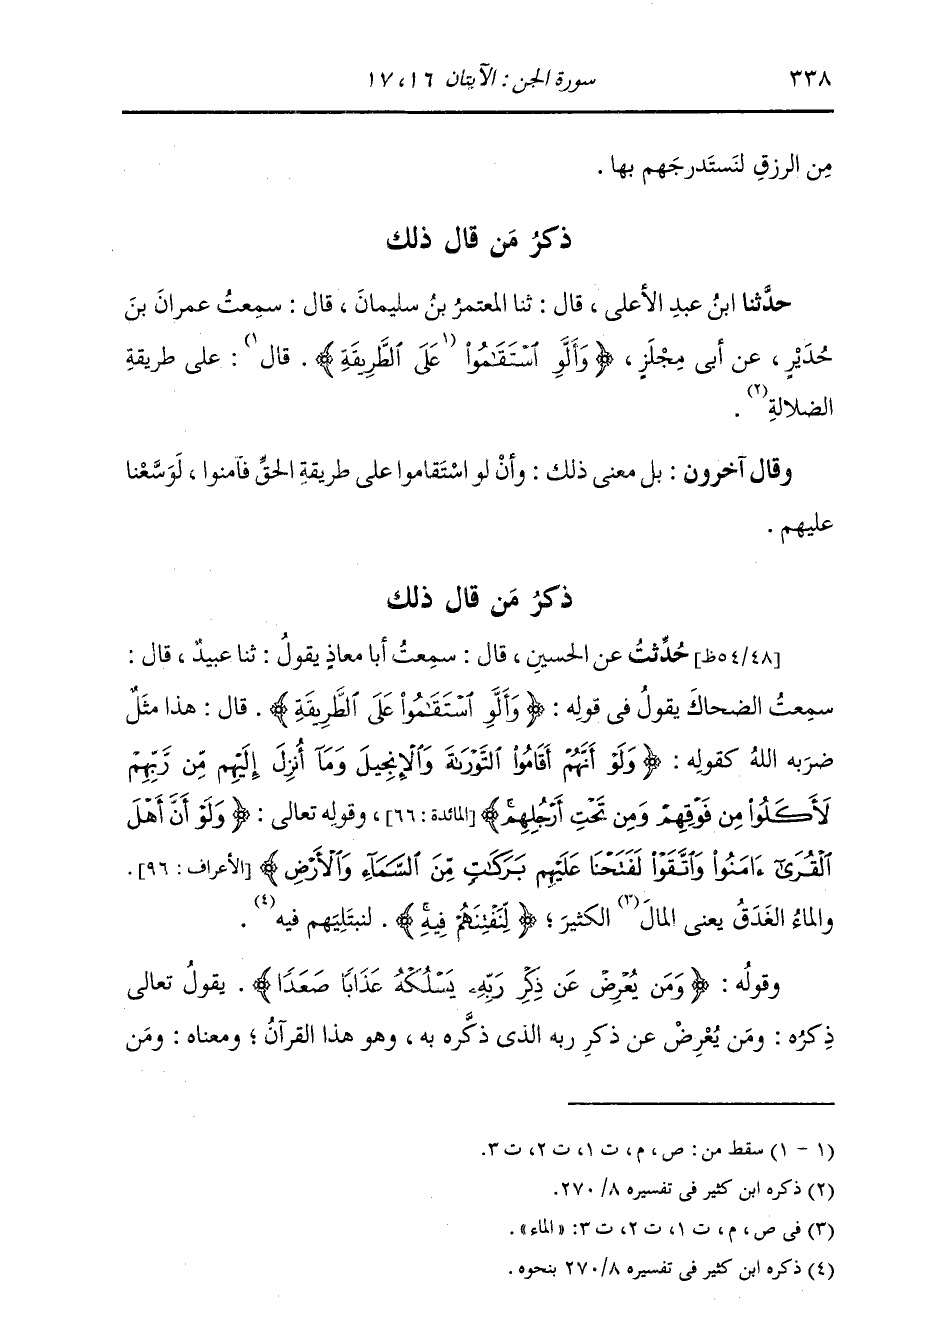 ٣٣٨ سورة الجن : الآيتان ١٦، ١٧
مِن الرزقِ لنَستَدرجَهم بها .
ذكرُ مَن قال ذلك
حدَّثنا ابنُ عبدِ الأعلى ، قال : ثنا المعتمرُ بنُ سليمانَ ، قال : سمِعتُ عمرانَ بنَ
حُدَيْرٍ ، عن أبى مِجْلَزٍ ، ﴿ وَأَلَّوِ ٱسْتَقَـٰمُوا۟ (١عَلَى ٱلطَّرِيقَةِ ﴾ . قال١) : على طريقةِ
الضلالةِ(٢) .
وقال آخرون : بل معنى ذلك : وأنْ لو اسْتَقاموا على طريقةِ الحقِّ فآمنوا ، لَوَسَّعْنا
عليهم .
ذكرُ مَن قال ذلك
[٥٤/٤٨ظ] حُدِّثتُ عن الحسينِ ، قال : سمِعتُ أبا معاذٍ يقولُ : ثنا عبيدٌ ، قال :
سمِعتُ الضحاكَ يقولُ فى قولِه : ﴿ وَأَلَّوِ ٱسْتَقَـٰمُوا۟ عَلَى ٱلطَّرِيقَةِ ﴾ . قال : هذا مثَلٌ
ضرَبه اللهُ كقولِه : ﴿ وَلَوْ أَنَّهُمْ أَقَامُوا۟ ٱلتَّوْرَىٰةَ وَٱلْإِنجِيلَ وَمَآ أُنزِلَ إِلَيْهِم مِّن رَّبِّهِمْ
لَأَكَلُوا۟ مِن فَوْقِهِمْ وَمِن تَحْتِ أَرْجُلِهِمۚ ﴾ [المائدة : ٦٦] ، وقولِه تعالى : ﴿ وَلَوْ أَنَّ أَهْلَ
ٱلْقُرَىٰٓ ءَامَنُوا۟ وَٱتَّقَوْا۟ لَفَتَحْنَا عَلَيْهِم بَرَكَـٰتٍ مِّنَ ٱلسَّمَآءِ وَٱلْأَرْضِ ﴾ [الأعراف : ٩٦] .
والماءُ الغَدَقُ يعنى المالَ(٣) الكثيرَ ؛ ﴿ لِّنَفْتِنَهُمْ فِيهِۚ ﴾ . لنبتَلِيَهم فيه(٤) .
وقولُه : ﴿ وَمَن يُعْرِضْ عَن ذِكْرِ رَبِّهِۦ يَسْلُكْهُ عَذَابًا صَعَدًا ﴾ . يقولُ تعالى
ذِكرُه : ومَن يُعْرِضْ عن ذكرِ ربه الذى ذكَّره به ، وهو هذا القرآنُ ؛ ومعناه : ومَن
(١ - ١) سقط من : ص ، م ، ت ١، ت ٢، ت ٣.
(٢) ذكره ابن كثير فى تفسيره ٨/ ٢٧٠.
(٣) فى ص ، م ، ت ١، ت ٢، ت ٣: «الماء» .
(٤) ذكره ابن كثير فى تفسيره ٢٧٠/٨ بنحوه .